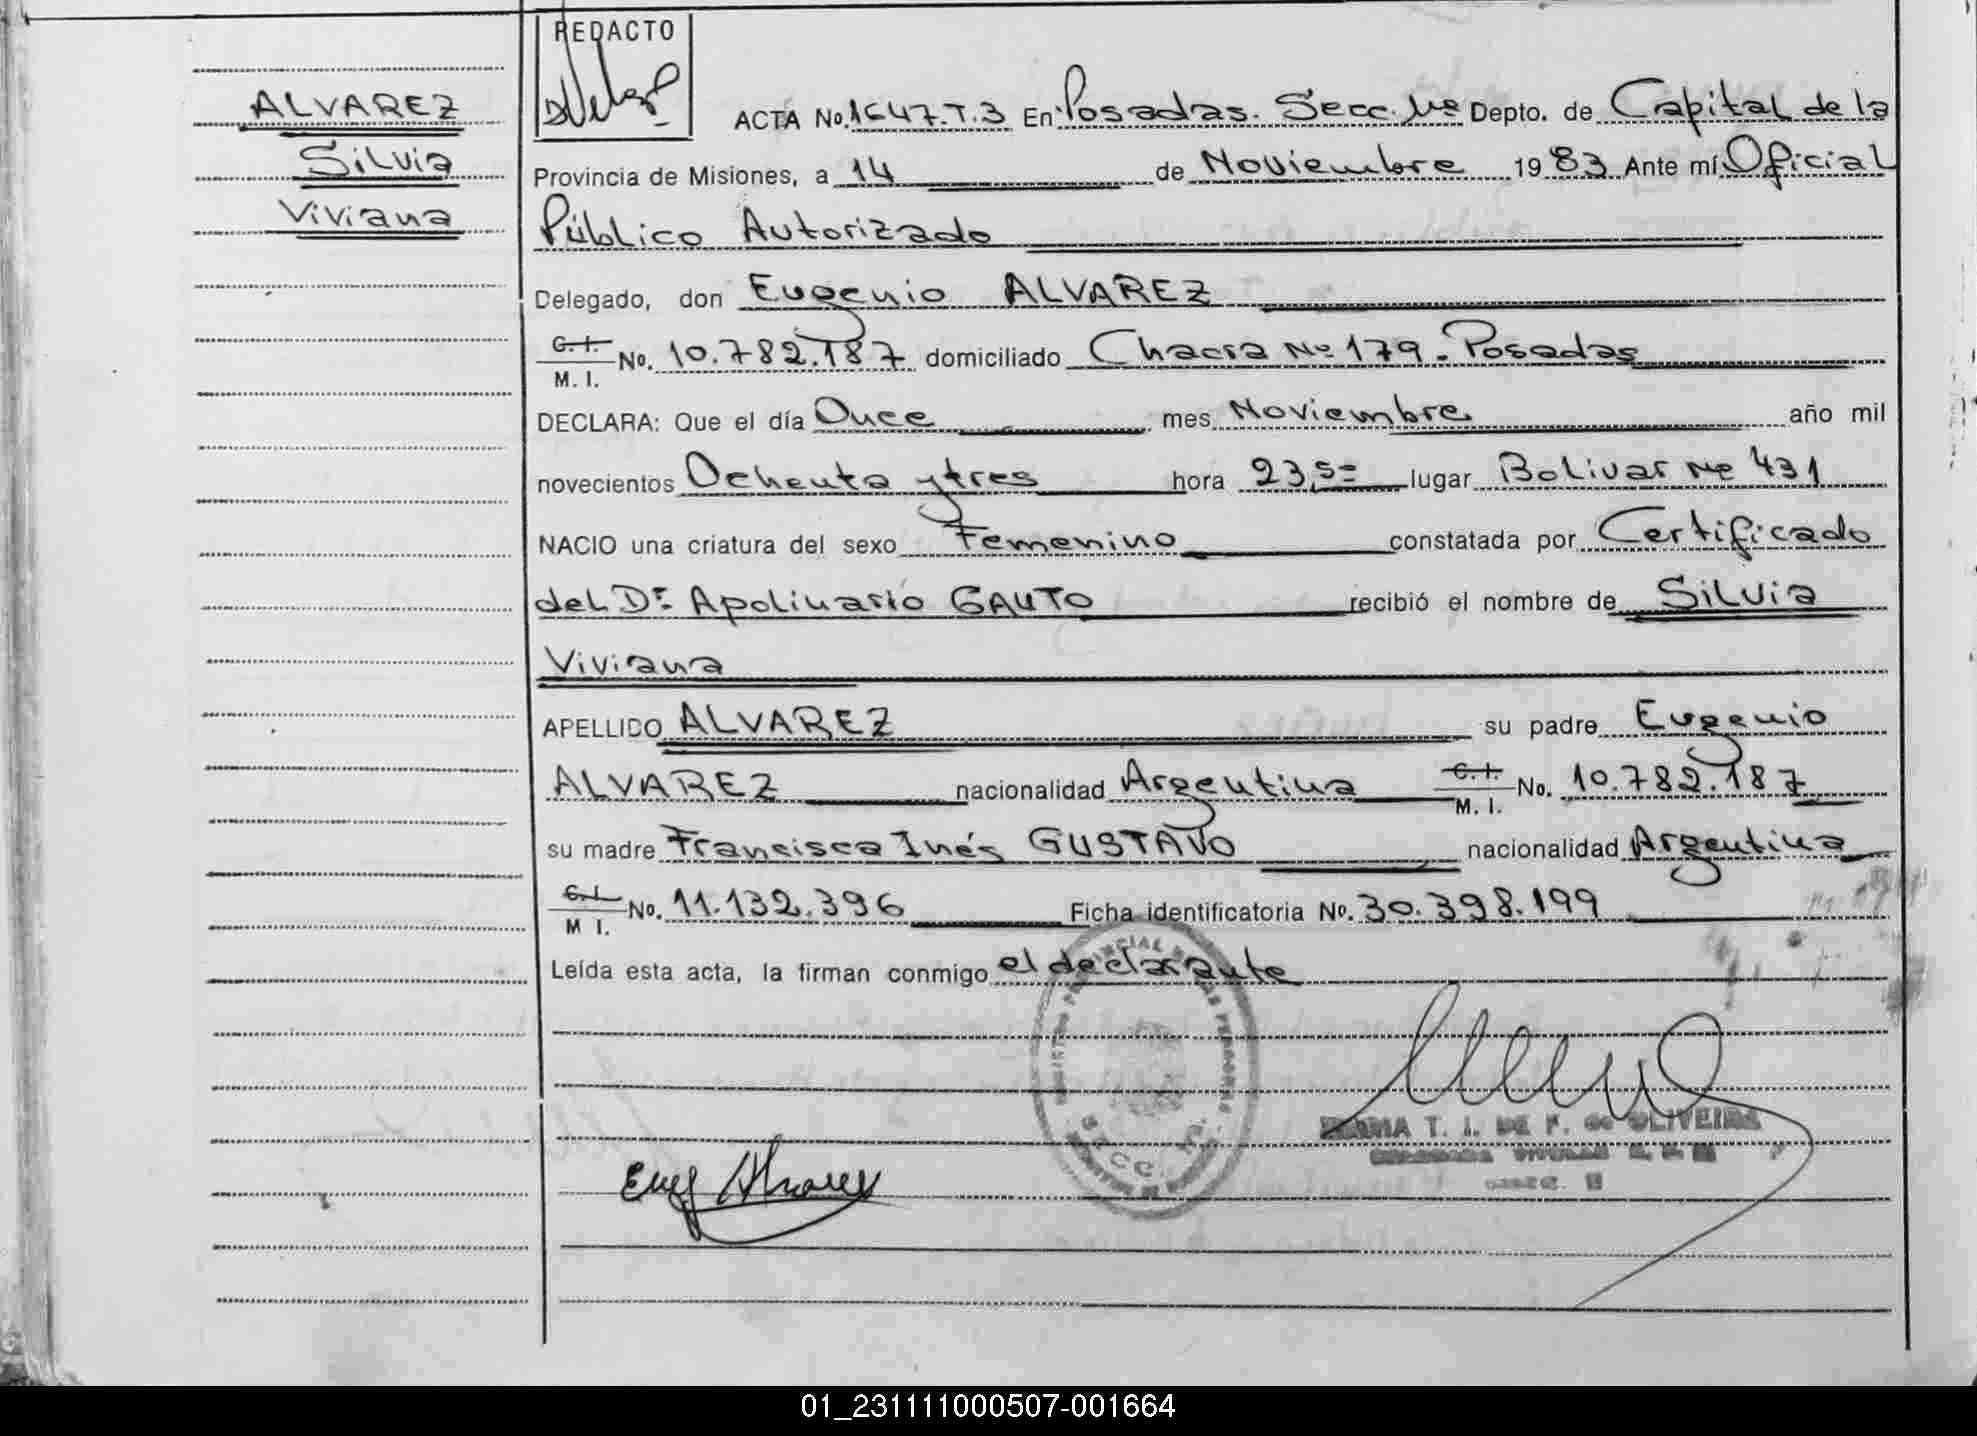 REDACTO
ALVAREZ
Silvia
Viviana
ACTA No. 1647.T.3 En Posadas. Secc. Depto. de Capital de la
Provincia de Misiones, a 14 de Noviembre 1983 Ante mí Oficial
Público Autorizado
Delegado, don Eugenio ALVAREZ
C. I. M. I. No. 10.782.187 domiciliado Chacra Nº 179. Posadas
DECLARA: Que el día Once mes Noviembre año mil
novecientos Ochenta y tres hora 23,5= lugar Bolivar Nº 431
NACIO una criatura del sexo Femenino constatada por Certificado
del Dr. Apolinario GAUTO recibió el nombre de Silvia
Viviana
APELLIDO ALVAREZ su padre Eugenio
ALVAREZ nacionalidad Argentina C. I. M. I. No. 10.782.187
su madre Francisca Inés GUSTAVO nacionalidad Argentina
C. I. M I. No. 11.132.396 Ficha identificatoria No. 30.398.199
Leída esta acta, la firman conmigo el declarante
MARIA T. I. DE F. de OLIVEIRA
Eug Alvarez
01_231111000507-001664